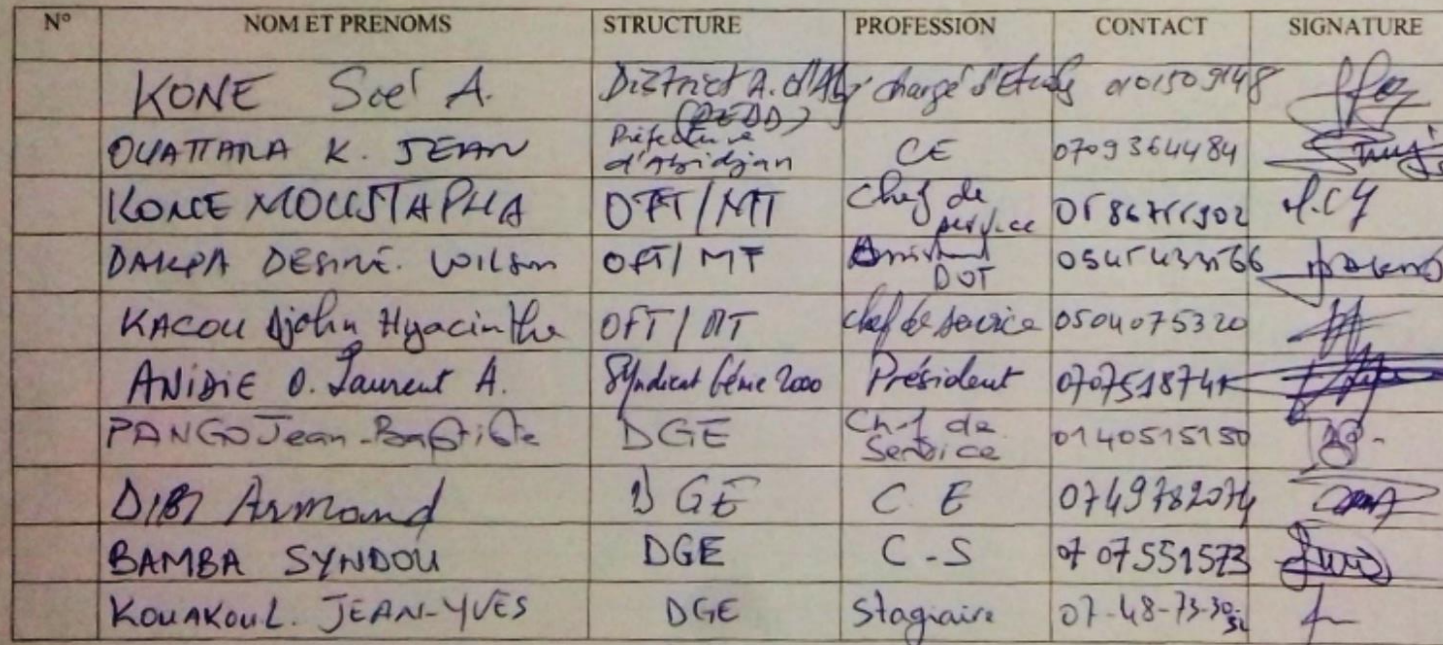 N° NOM ET PRENOMS STRUCTURE PROFESSION CONTACT SIGNATURE
KONE Soé A. District A. d'Abj chargé d'Etudes
OUATTARA K. JEAN Préfecture d'Abidjan CE 0709364484
KONE MOUSTAPHA OFT/MT Chef de service
DAKPA DESIRÉ. WILSON OFT/MT Assistant DOT
KACOU Djohn Hyacinthe OFT/MT chef de service 0504075320
ANIDIE O. Laurent A. Syndicat Génie 2000 Président
PANGO Jean-Baptiste DGE Chef de Service 0140515150
DIBI Armand DGE C. E 0749782074
BAMBA SYNDOU DGE C-S 0707551573
KOUAKOU L. JEAN-YVES DGE Stagiaire